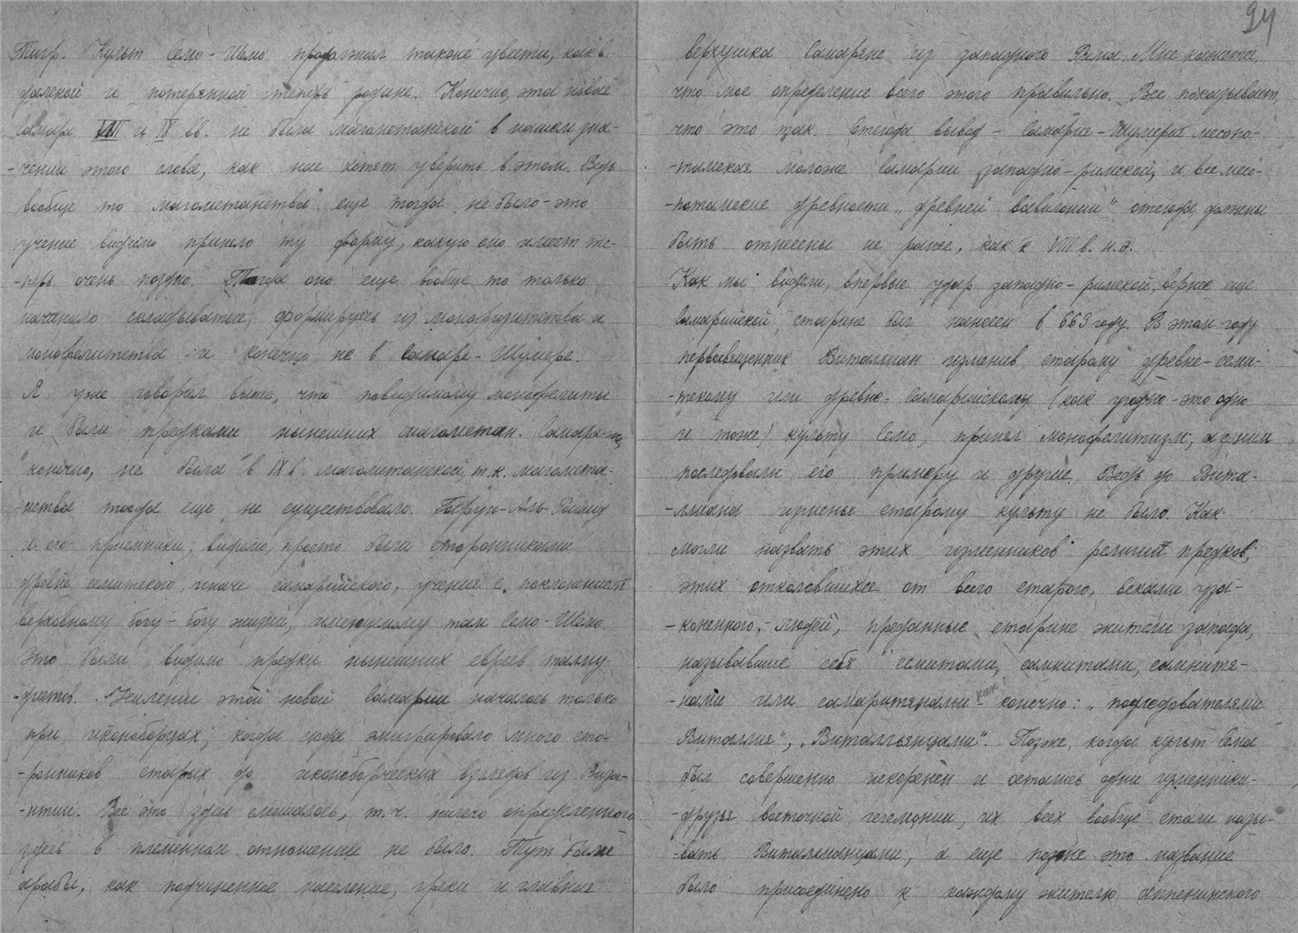 Тигр. Культ Семо-Шемо продолжал также цвести, как в
далекой и потерянной теперь родине. Конечно, эта новая
Самара VIII и IX вв. не была магометанской в нашем зна-
-чении этого слова, как нас хотят уверить в этом. Ведь
вообще то магометанства еще тогда не было - это
учение видимо приняло ту форму, какую оно имеет те-
-перь очень поздно. Тогда оно еще вообще то только
начинало складываться, формируясь из монофизитства и
монофелитства и конечно не в Самаре-Шумере.
Я уже говорил выше, что повидимому монофелиты
и были предками нынешних магометан. Самара-то,
конечно, не была в IX в. магометанской, т.к. магомета-
-нства тогда еще не существовало. Гарун-Аль-Рашид
и его приемники, видимо, просто были сторонниками
древне семитского, иначе самарийского, учения с поклонением
верховному богу - богу жизни, именуемому там Семо-Шемо.
Это были, видимо предки нынешних евреев талму-
-дистов. Усиление этой новой Самарии началось только
при иконоборцах, когда сюда эмигрировало много сто-
-ронников старых до иконоборческих взглядов из Визан-
-нтии. Все это здесь смешалось, т.ч. ничего определенного
здесь в племенном отношении не было. Тут были
арабы, как подчиненное население, греки и главная
94
верхушка Самаряне из западного Рима. Мне кажется,
что мое определение всего этого правильно. Все показывает,
что это так. Отсюда вывод - Самария-Шумерия месопо-
-тамская моложе Самарии западно-римской, и все месо-
-потамские древности „древней вавилонии“ отсюда должны
быть отнесены не ранее, как к VIII в. н.э.
Как мы видели, впервые удар западно-римской, вернее еще
Самарийской, старине был нанесен в 663 году. В этом году
первосвященник Виталиан изменив старому древне-семи-
-тскому или древне-самарийскому (как угодно - это одно
и тоже) культу Семо, принял монофелитизм, а за ним
последовали его примеру и другие. Ведь до Вита-
-лиана измены старому культу не было. Как
могли назвать этих изменников религии предков,
этих отколовшихся от всего старого, веками уза-
-коненного, - людей, преданные старине жители запада,
называвшие себя семитами, самнитами, самнитя-
-нами или самаритянами как конечно: „последователями
Виталия“, „Витальянцами“. Позже, когда культ Сема
был совершенно искоренен и остались одни изменники-
-друзья восточной гегемонии, их всех вообще стали назы-
-вать Витальянцами, а еще позже это название
было присоединено к каждому жителю аппенинского